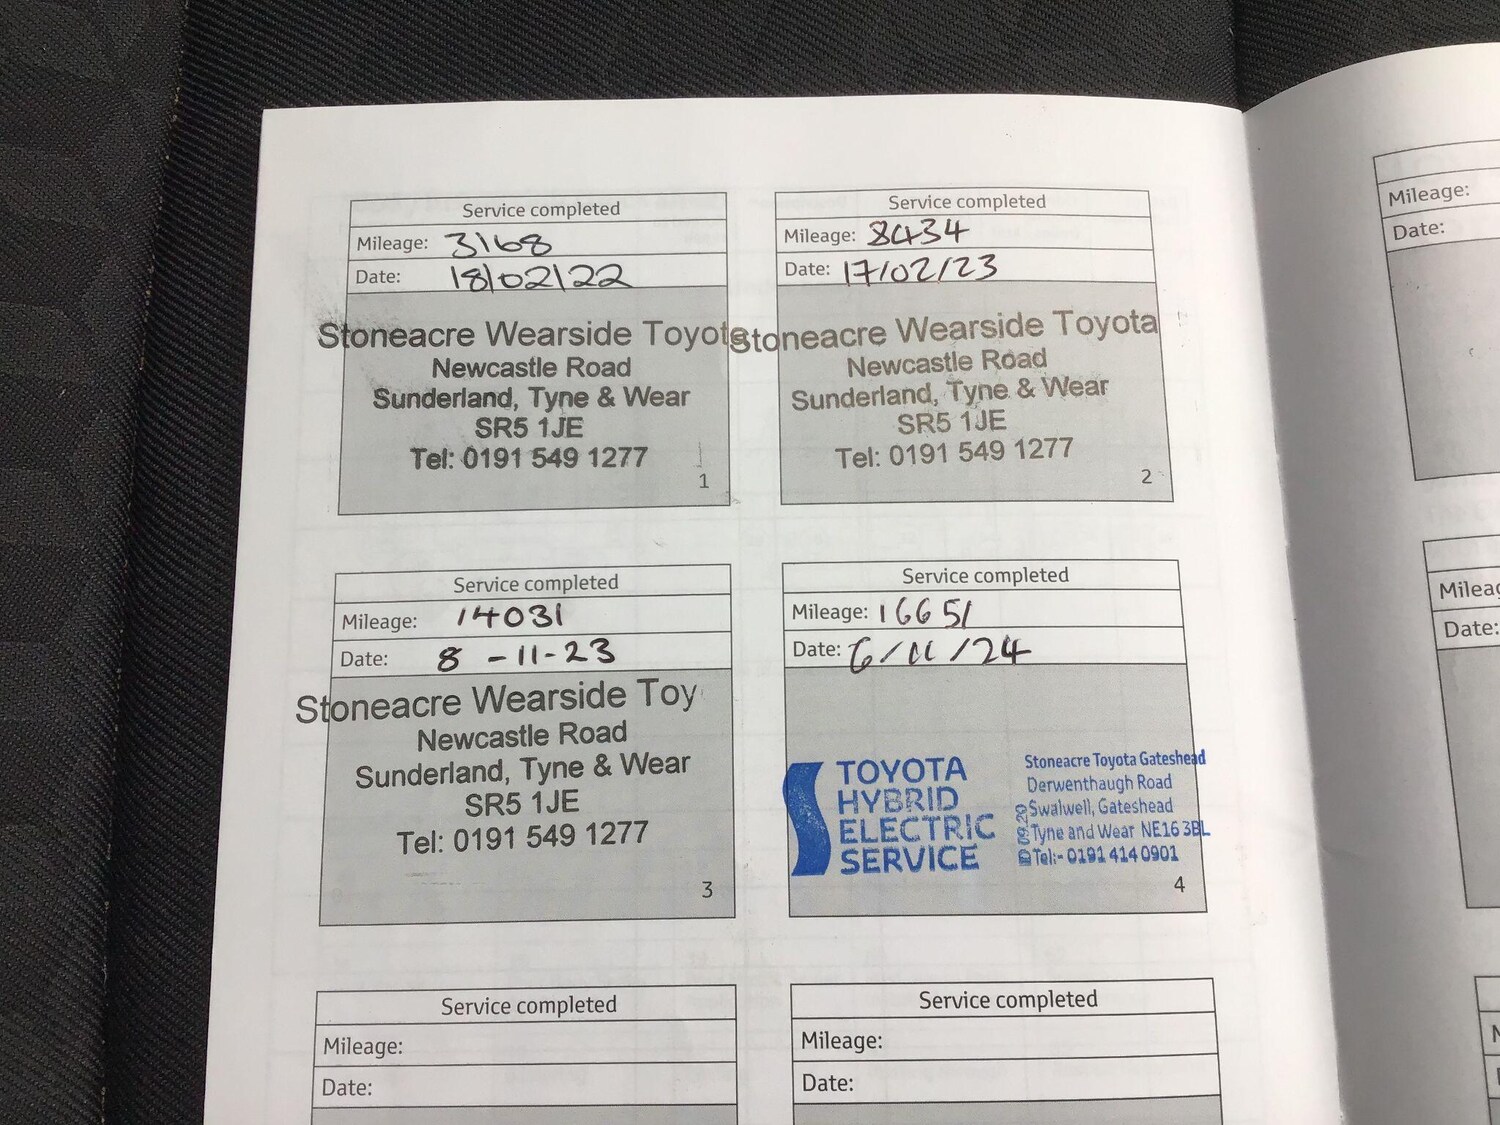 Service completed
Mileage: 3168
Date: 18/02/22
Stoneacre Wearside Toyota
Newcastle Road
Sunderland, Tyne & Wear
SR5 1JE
Tel: 0191 549 1277
1
Service completed
Mileage: 8434
Date: 17/02/23
Stoneacre Wearside Toyota
Newcastle Road
Sunderland, Tyne & Wear
SR5 1JE
Tel: 0191 549 1277
2
Service completed
Mileage: 14031
Date: 8 -11-23
Stoneacre Wearside Toy
Newcastle Road
Sunderland, Tyne & Wear
SR5 1JE
Tel: 0191 549 1277
3
Service completed
Mileage: 16651
Date: 6/11/24
TOYOTA
HYBRID
ELECTRIC
SERVICE
Stoneacre Toyota Gateshead
Derwenthaugh Road
Swalwell, Gateshead
Tyne and Wear NE16 3BL
Tel:- 0191 414 0901
4
Service completed
Mileage:
Date:
Service completed
Mileage:
Date:
Mileage:
Date:
Mileag
Date: